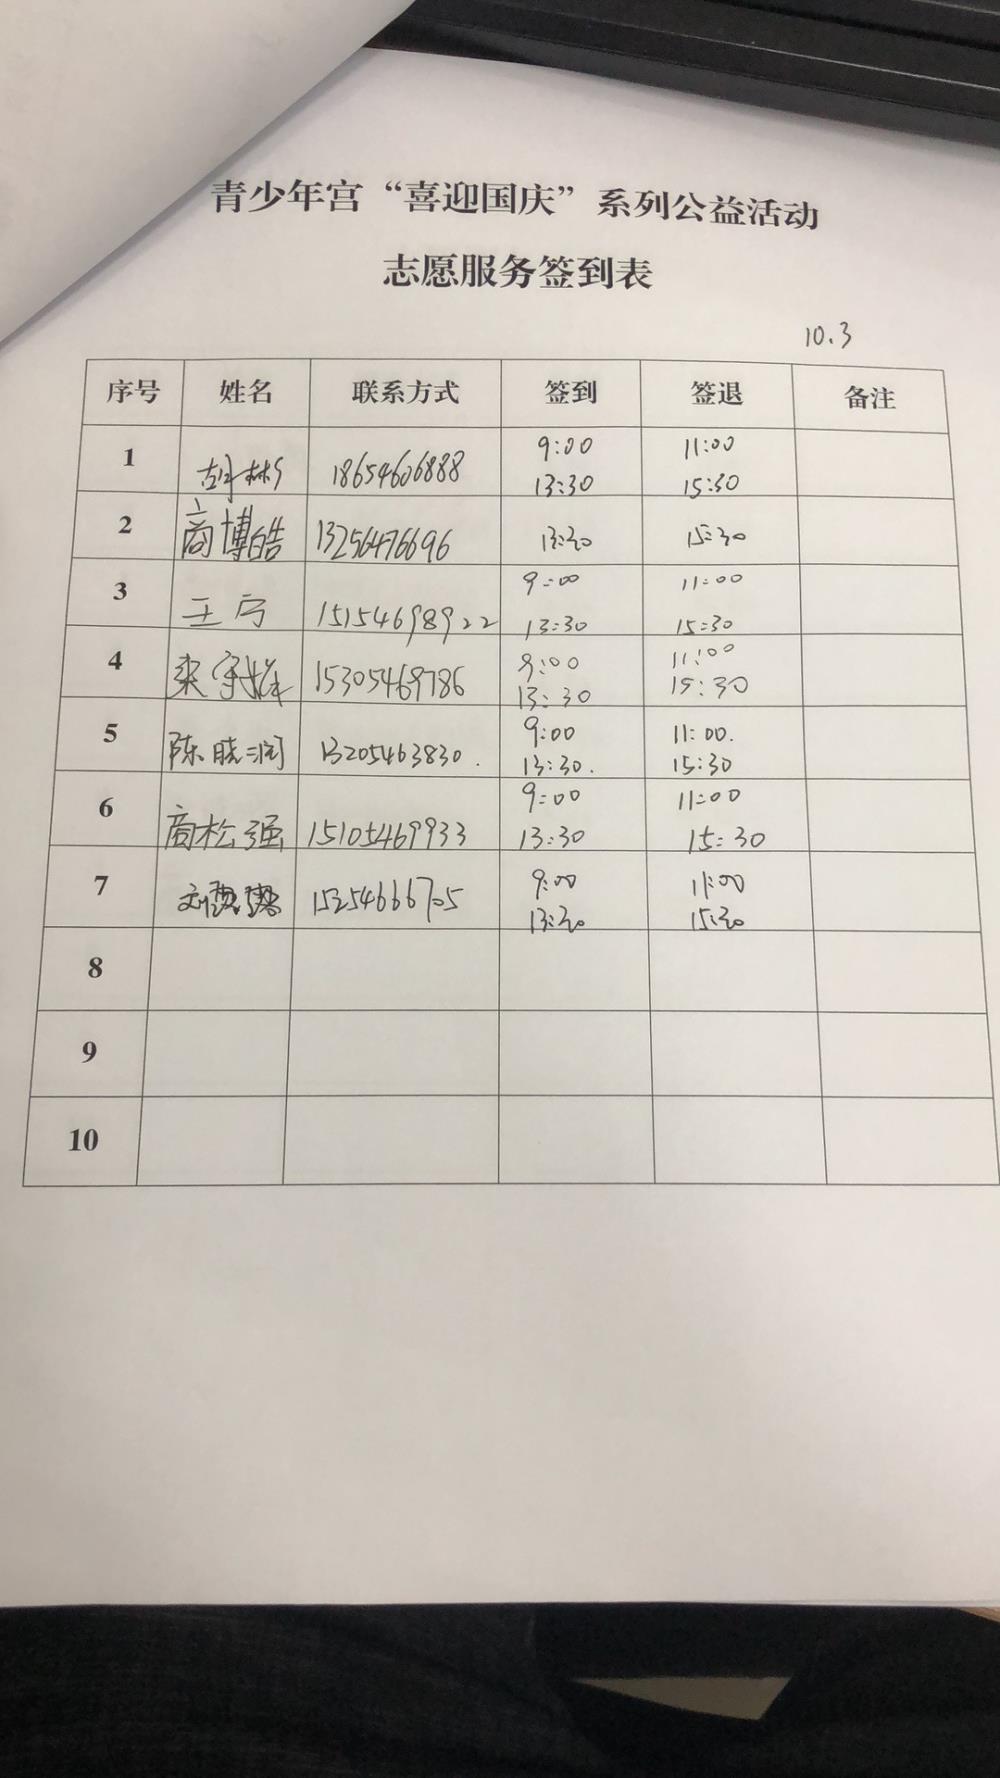 青少年宫“喜迎国庆”系列公益活动
志愿服务签到表
10.3
序号 姓名 联系方式 签到 签退 备注
1 胡彬 18654606888 9:00 11:00
13:30 15:30
2 商博皓 13256476696 13:30 15:30
3 王 15154698922 9:00 11:00
13:30 15:30
4 15305469786 9:00 11:00
13:30 15:30
5 陈晓润 13205463830. 9:00 11:00.
13:30. 15:30
6 商松强 15105469933 9:00 11:00
13:30 15:30
7 刘 15254666705 9:00 11:00
13:30 15:30
8
9
10